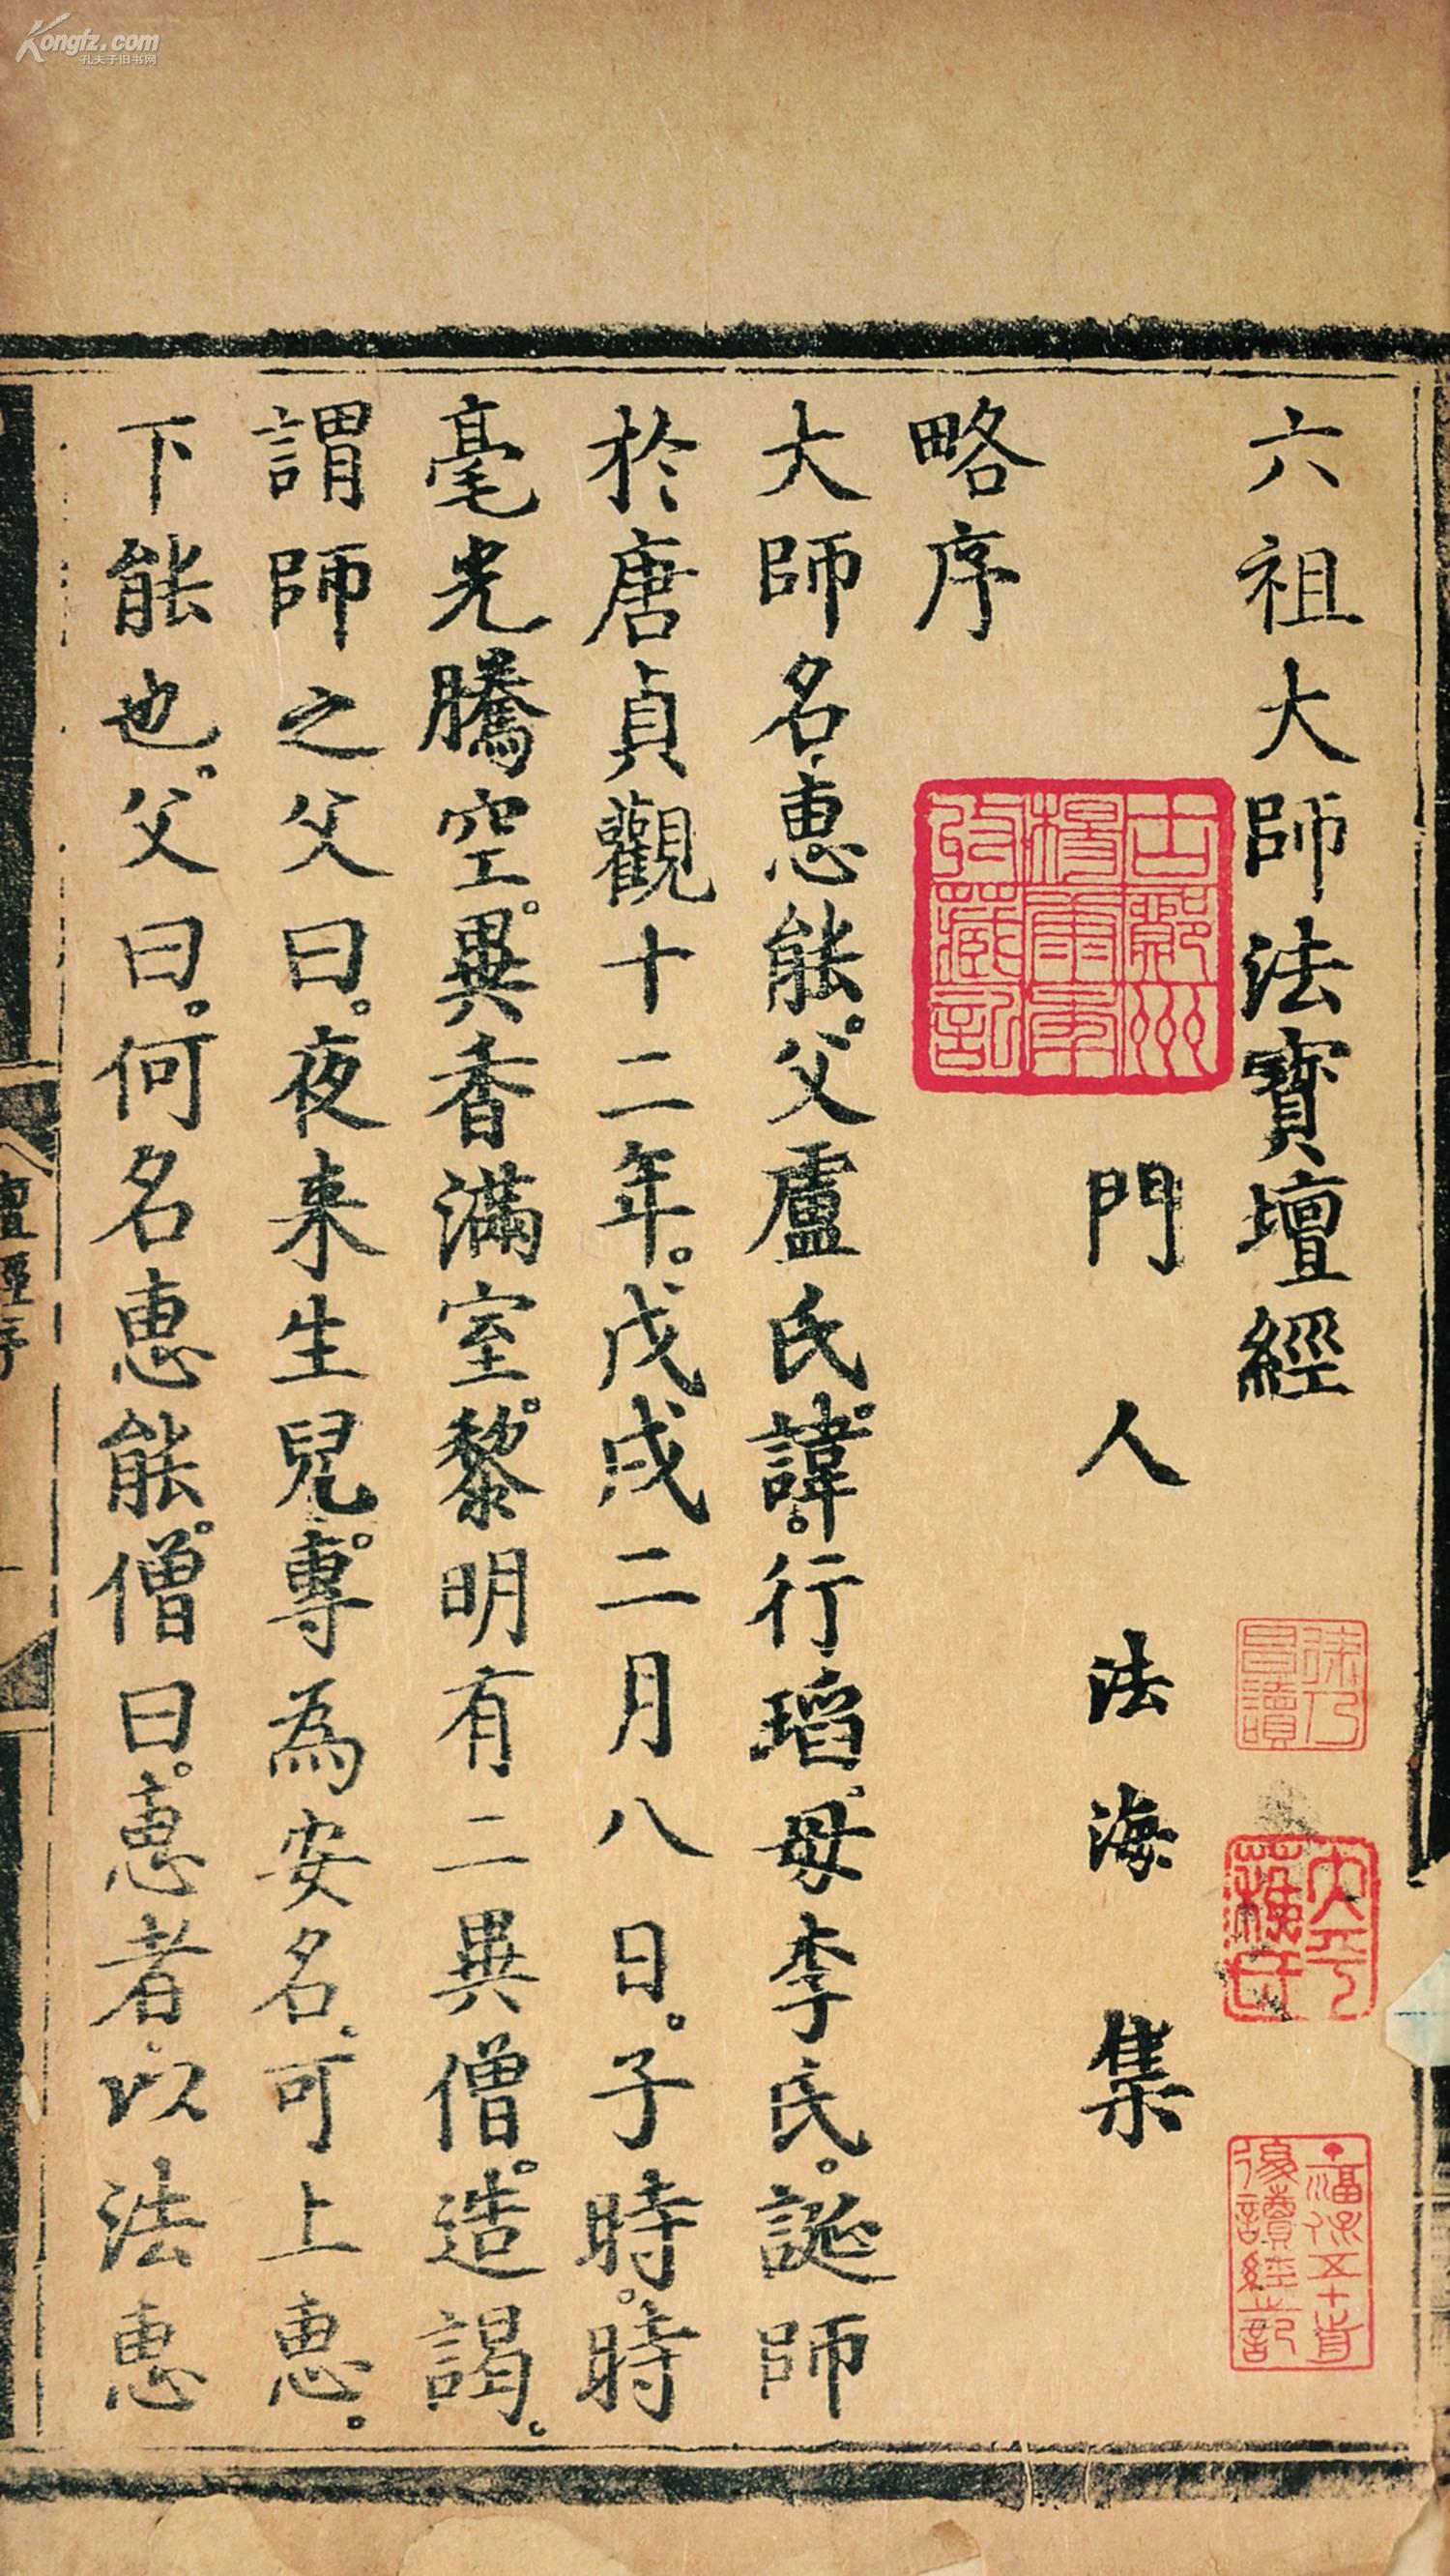 Kongfz.com
孔夫子旧书网
六祖大師法寶壇經
門人法海集
略序
大師名惠能。父盧氏。諱。行瑫。母李氏。誕師
於唐貞觀十二年。戊戌二月八日。子時。時
毫光騰空。異香滿室。黎明有二異僧。造謁。
謂師之父曰。夜来生兒。專為安名。可上惠。
下能也。父曰。何名惠能。僧曰。惠者。以法惠
壇經序